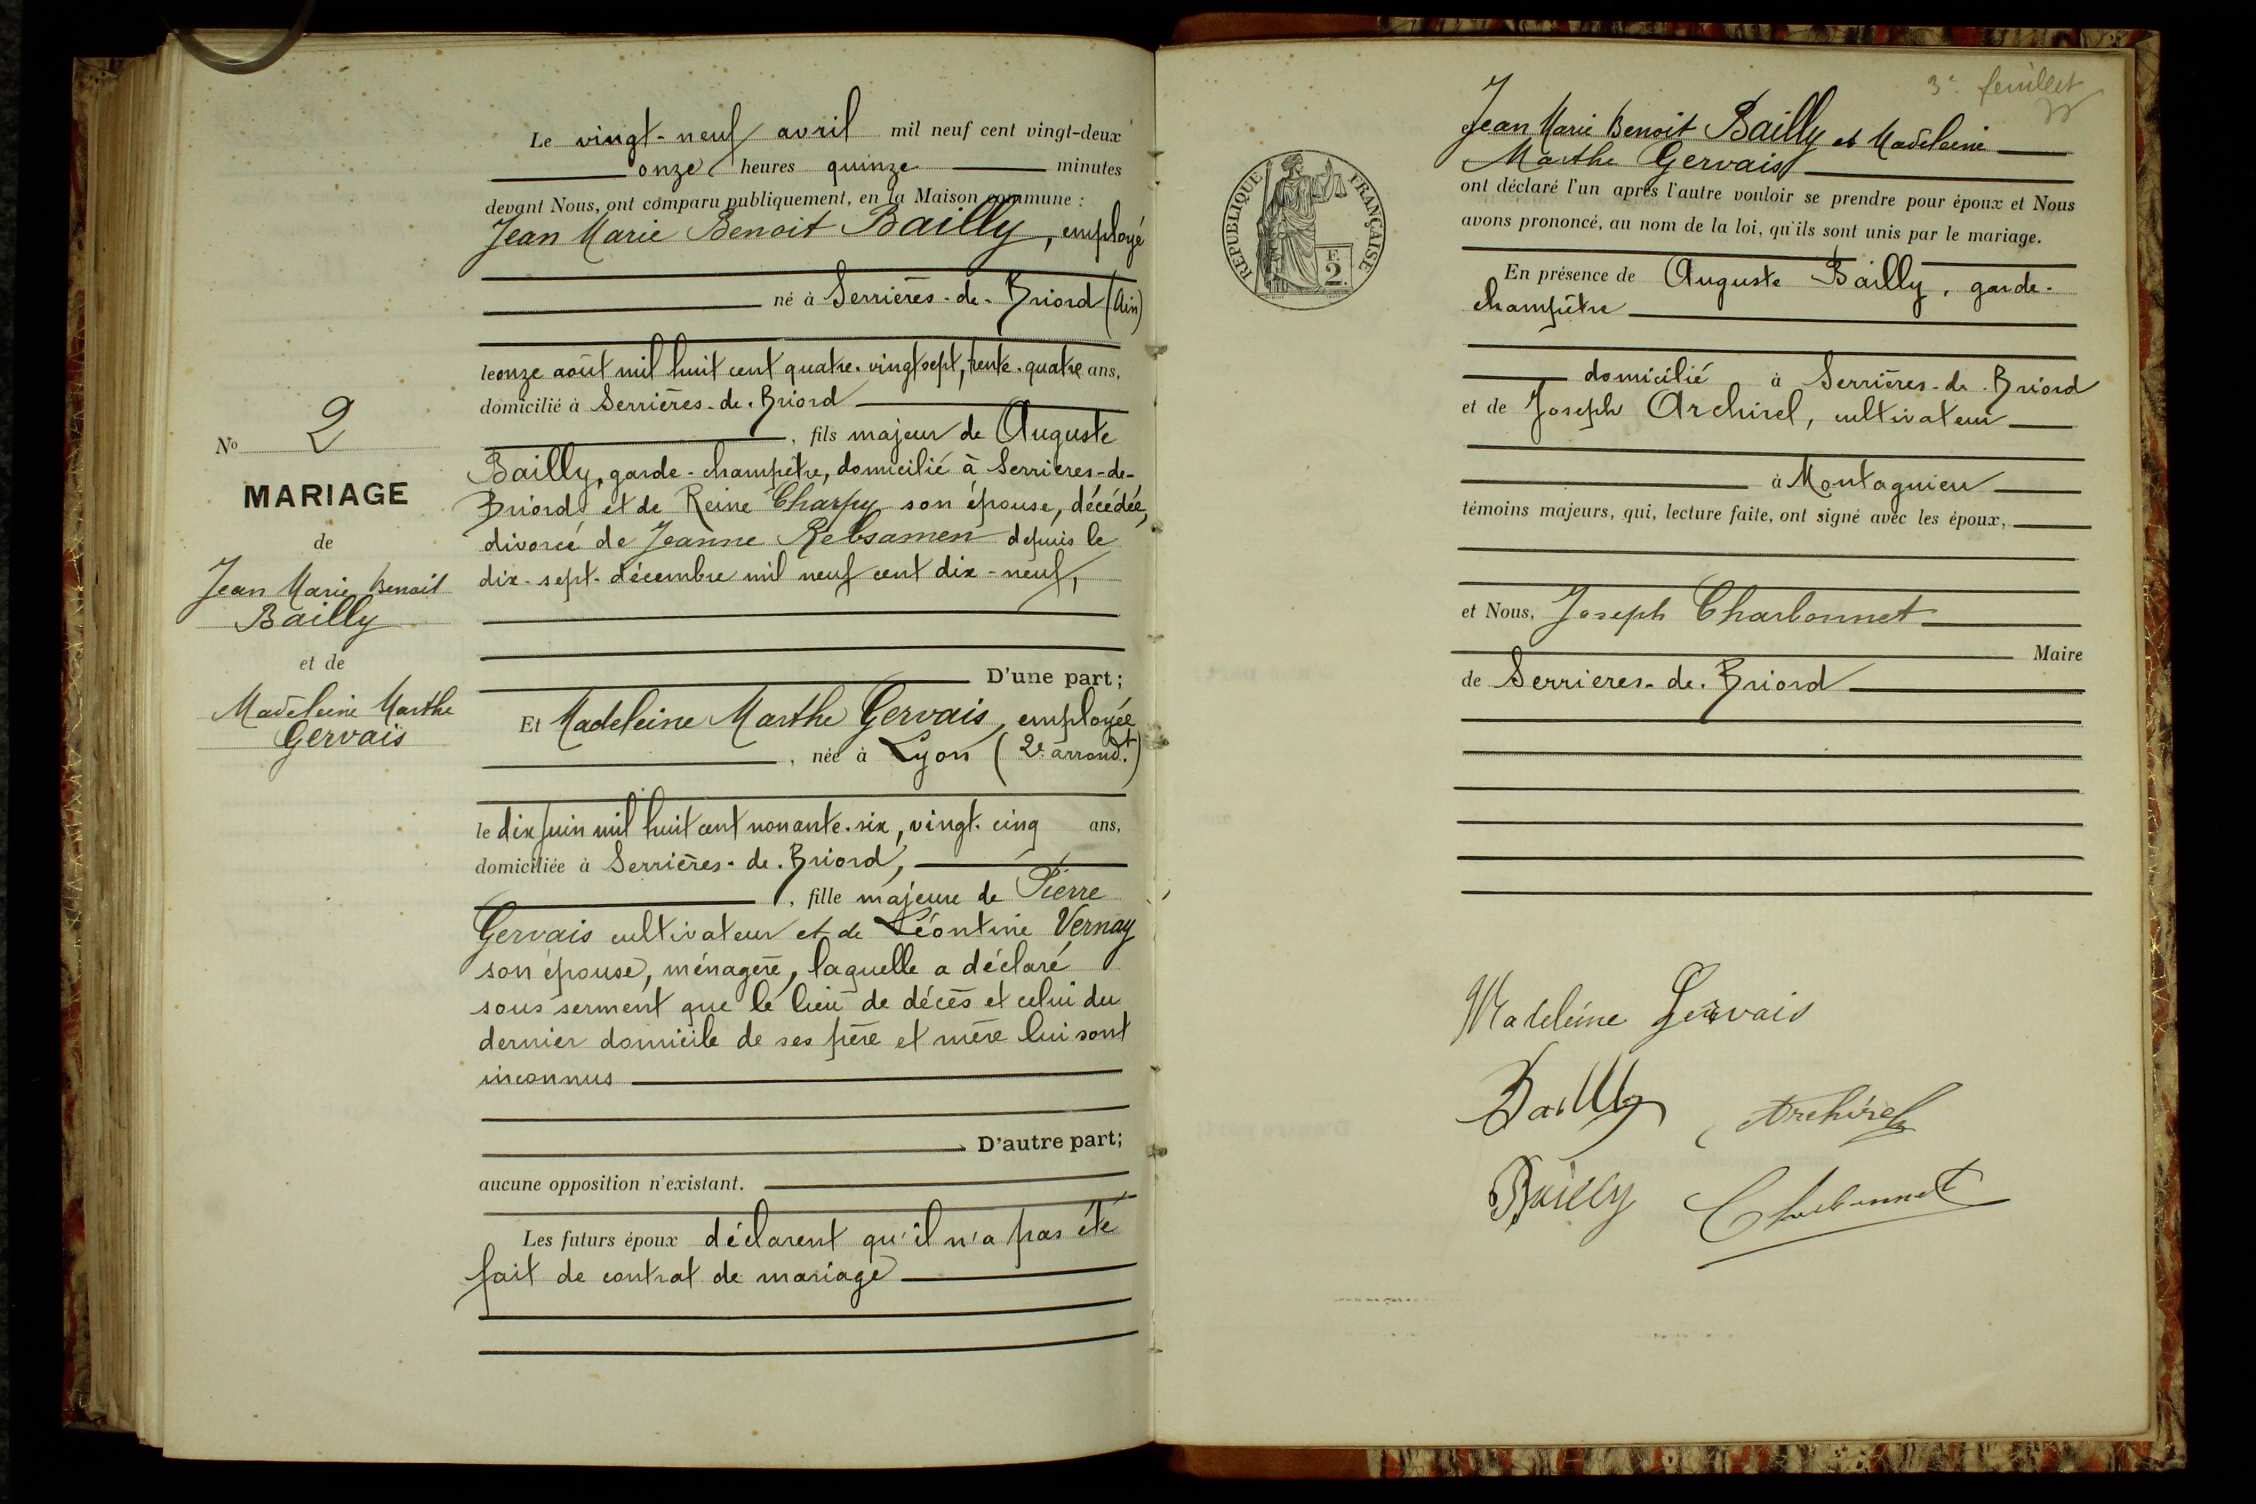 Le vingt-neuf avril mil neuf cent vingt-deux
onze heures quinze minutes
devant Nous, ont comparu publiquement, en la Maison commune :
Jean Marie Benoit Bailly, employé
né à Serrières-de-Briord (Ain)
le onze août mil huit cent quatre-vingt sept, trente-quatre ans,
domicilié à Serrières-de-Briord
, fils majeur de Auguste
Bailly, garde-champêtre, domicilié à Serrières-de-
Briord et de Reine Charpy son épouse, décédée,
divorcé de Jeanne Rebsamen depuis le
dix-sept décembre mil neuf cent dix-neuf,
D'une part;
Et Madeleine Marthe Gervais, employée
, née à Lyon (2e arrondt.)
le dix juin mil huit cent nonante-six, vingt-cinq ans,
domiciliée à Serrières-de-Briord,
, fille majeure de Pierre
Gervais cultivateur et de Léontine Vernay
son épouse, ménagère, laquelle a déclaré
sous serment que le lieu de décès et celui du
dernier domicile de ses père et mère lui sont
inconnus
D'autre part;
aucune opposition n'existant.
Les futurs époux déclarent qu'il n'a pas été
fait de contrat de mariage
No 2
MARIAGE
de
Jean Marie Benoit
Bailly
et de
Madeleine Marthe
Gervais
3e feuillet
RÉPUBLIQUE FRANÇAISE
F.
2.
Jean Marie Benoit Bailly et Madeleine
Marthe Gervais
ont déclaré l'un après l'autre vouloir se prendre pour époux et Nous
avons prononcé, au nom de la loi, qu'ils sont unis par le mariage.
En présence de Auguste Bailly, garde-
champêtre
domicilié à Serrières-de-Briord
et de Joseph Archirel, cultivateur
à Montagnieu
témoins majeurs, qui, lecture faite, ont signé avec les époux,
et Nous, Joseph Charbonnet
Maire
de Serrières-de-Briord
Madeleine Gervais
Bailly
Archirel
Bailly
Charbonnet